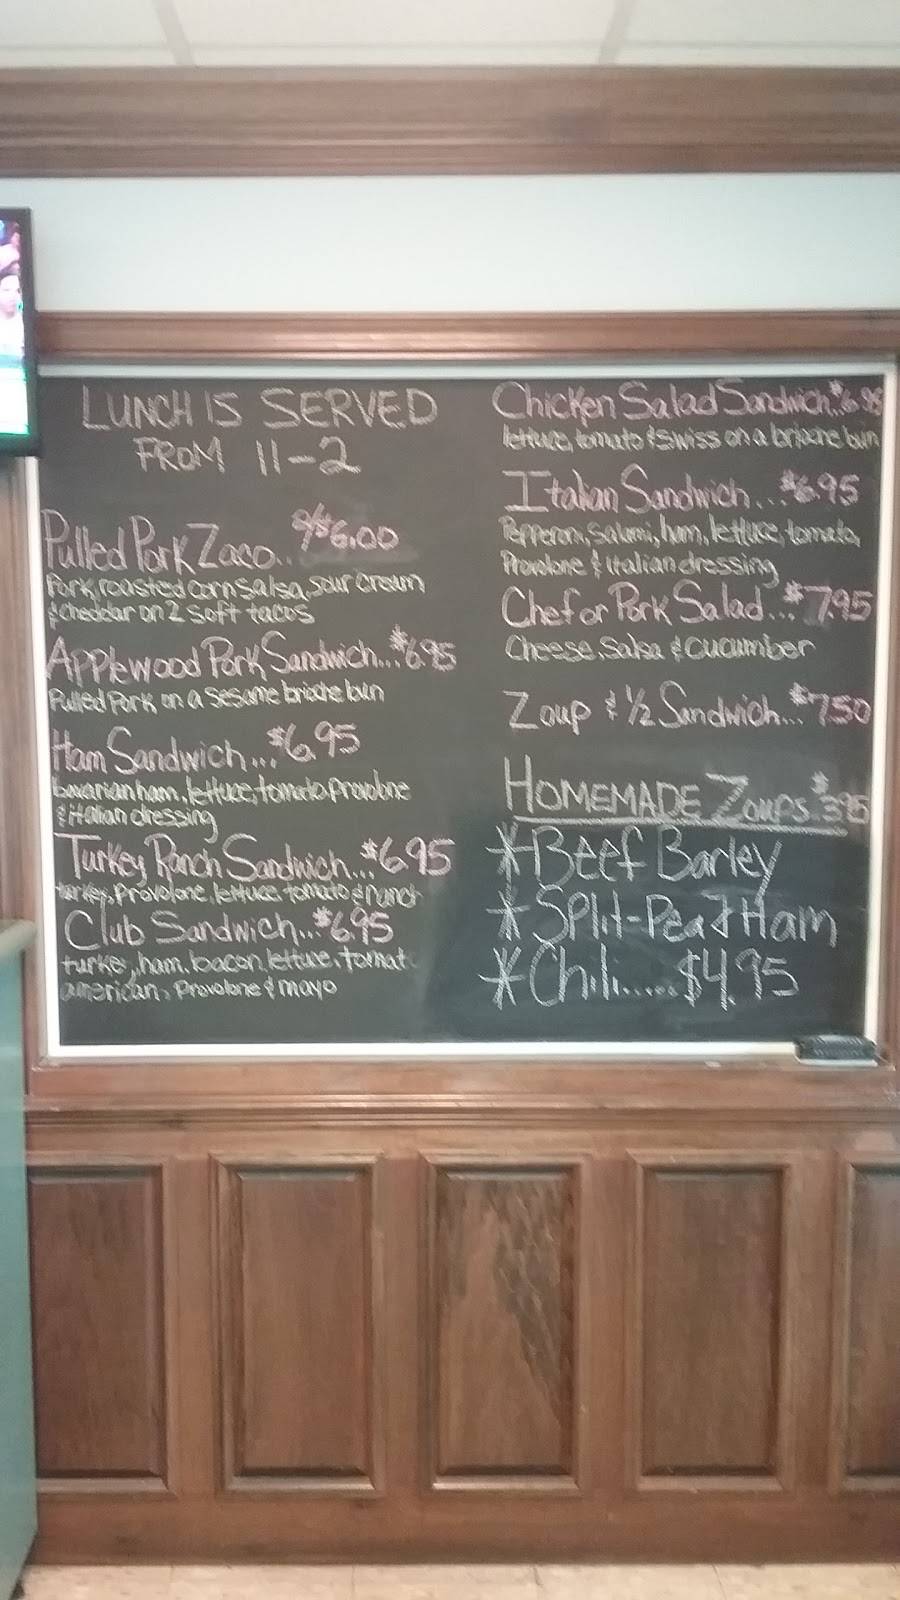 LUNCH IS SERVED
FROM 11-2
Pulled Pork Zaco.. $6.00
Pork, roasted corn salsa, sour cream
& cheddar on 2 soft tacos
Applewood Pork Sandwich...$6.95
Pulled Pork on a sesame brioche bun
Ham Sandwich...$6.95
bavarian ham, lettuce, tomato provolone
& italian dressing
Turkey Ranch Sandwich...$6.95
turkey, Provolone, lettuce tomato & ranch
Club Sandwich...$6.95
turkey, ham, bacon, lettuce, tomat
american, Provolone & mayo
Chicken Salad Sandwich..$6.95
lettuce, tomato & swiss on a brioche bun
Italian Sandwich...$6.95
Pepperoni, Salami, ham, lettuce, tomato,
Provolone & italian dressing
Chef or Pork Salad...$7.95
Cheese, Salsa & cucumber
Zoup & 1/2 Sandwich...$7.50
HOMEMADE Zoups $3.95
* Beef Barley
* Split-Pea & Ham
* Chili.....$4.95